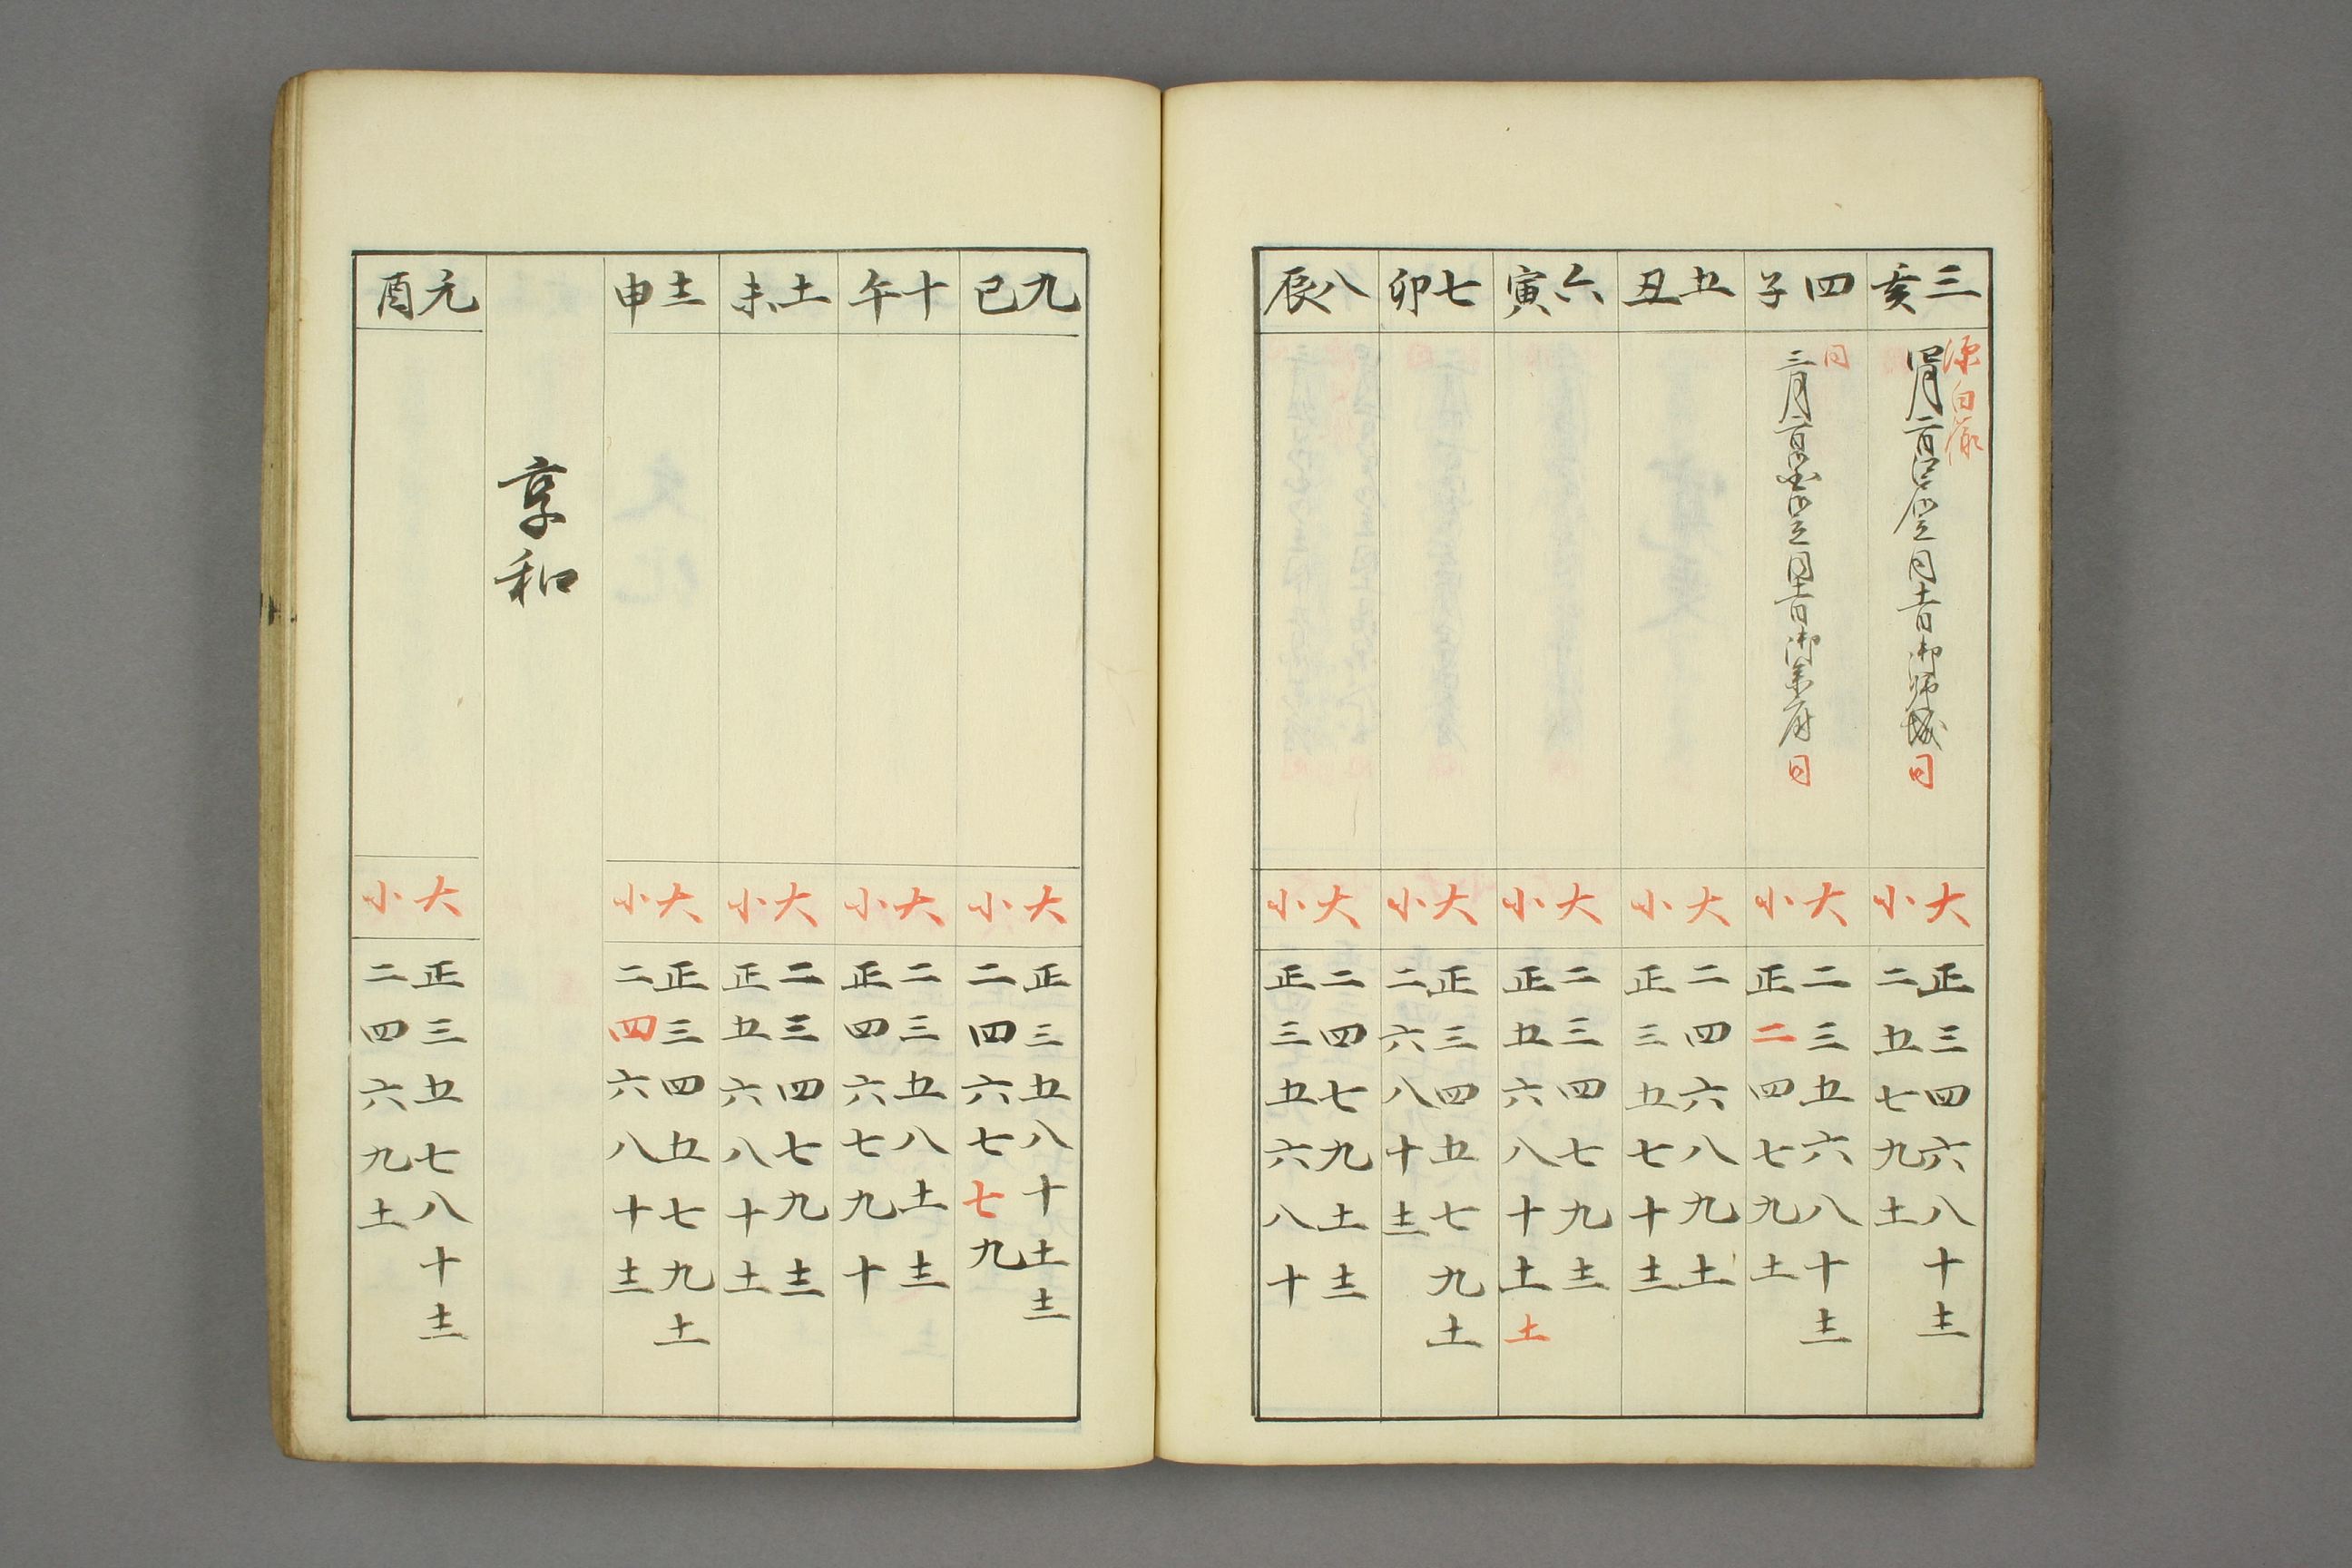 三亥
四月
同十二日御帰城
同
大 正三四六八十十二
小 二五七九十一
四子
同
三月
御参府
同
大 二三五六八十十二
小 正二四七九十一
五丑
大 二四六八九十一
小 正三五七十十二
六寅
大 二三四七九十二
小 正五六八十十一十一
七卯
大 正三四五七九十一
小 二六八十十二
八辰
大 二四七九十一十二
小 正三五六八十
九巳
大 正三五八十十一十二
小 二四六七七九
十午
大 二三五八十一十二
小 正四六七九十
十一未
大 二三四七九十二
小 正五六八十十一
十二申
大 正三四五七九十一
小 二四六八十十二
享和
元酉
大 正三五七八十十二
小 二四六九十一